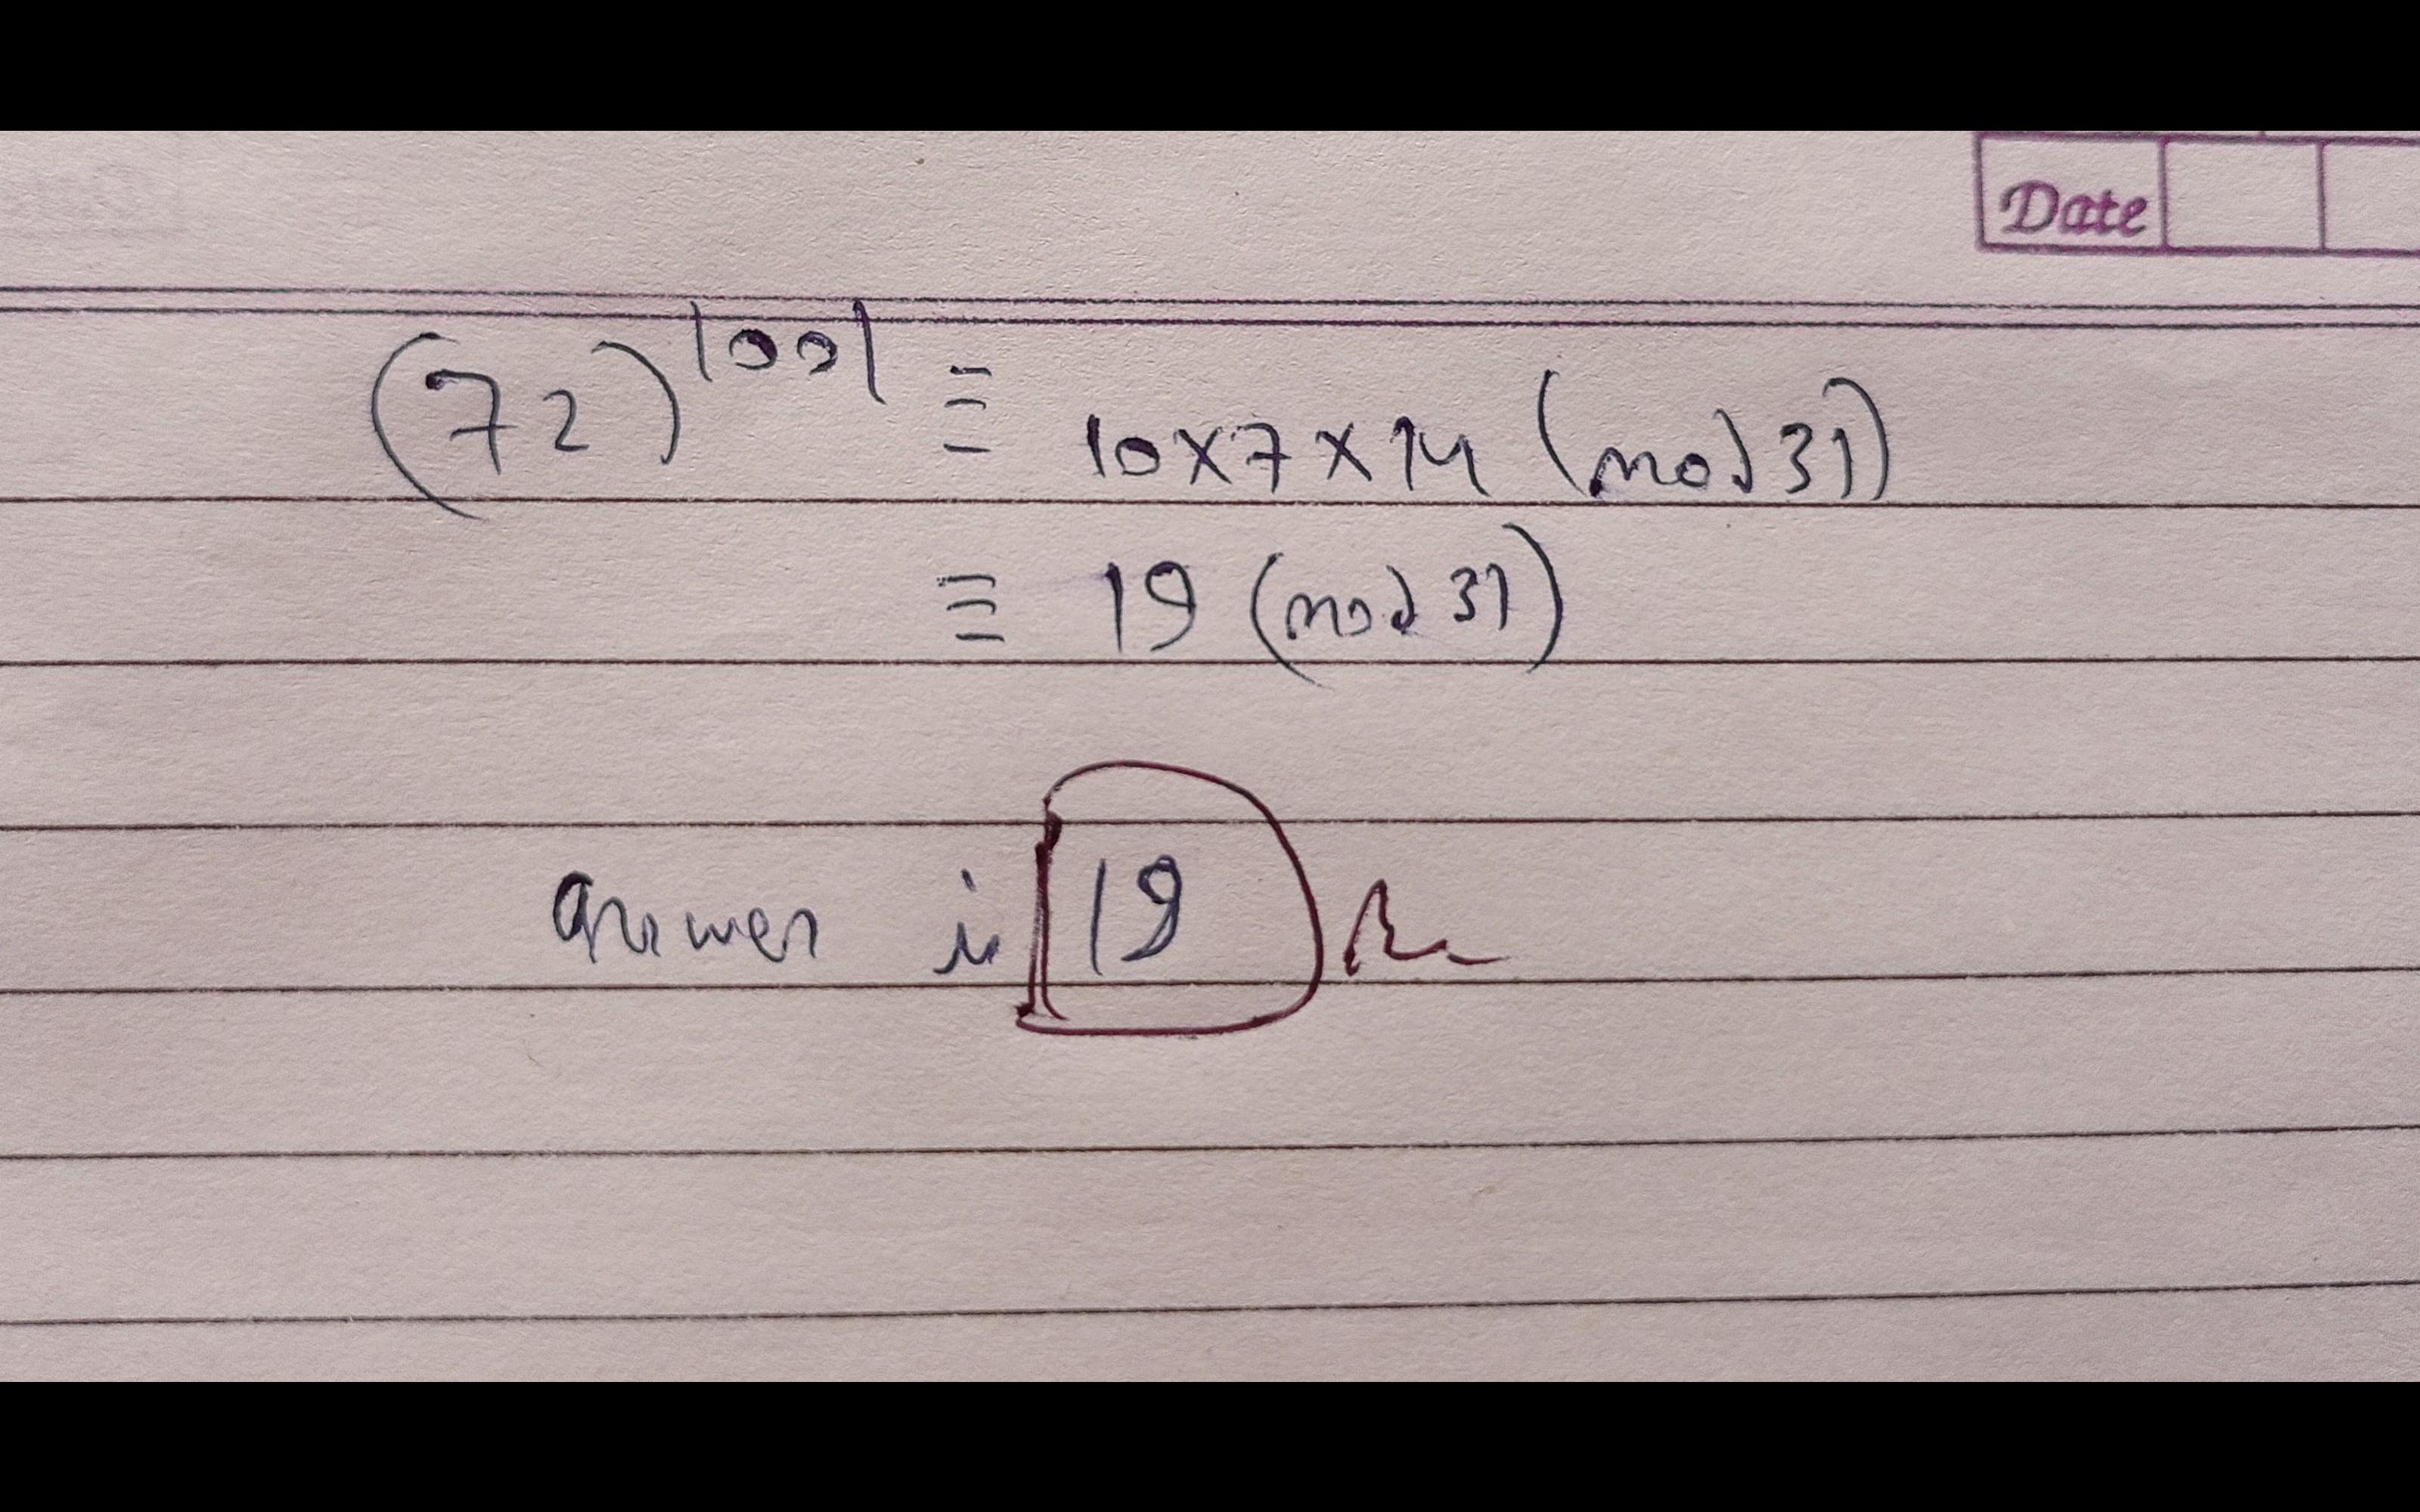 Date
(72)^1001 ≡ 10×7×14 (mod 31)
≡ 19 (mod 31)
answer is 19